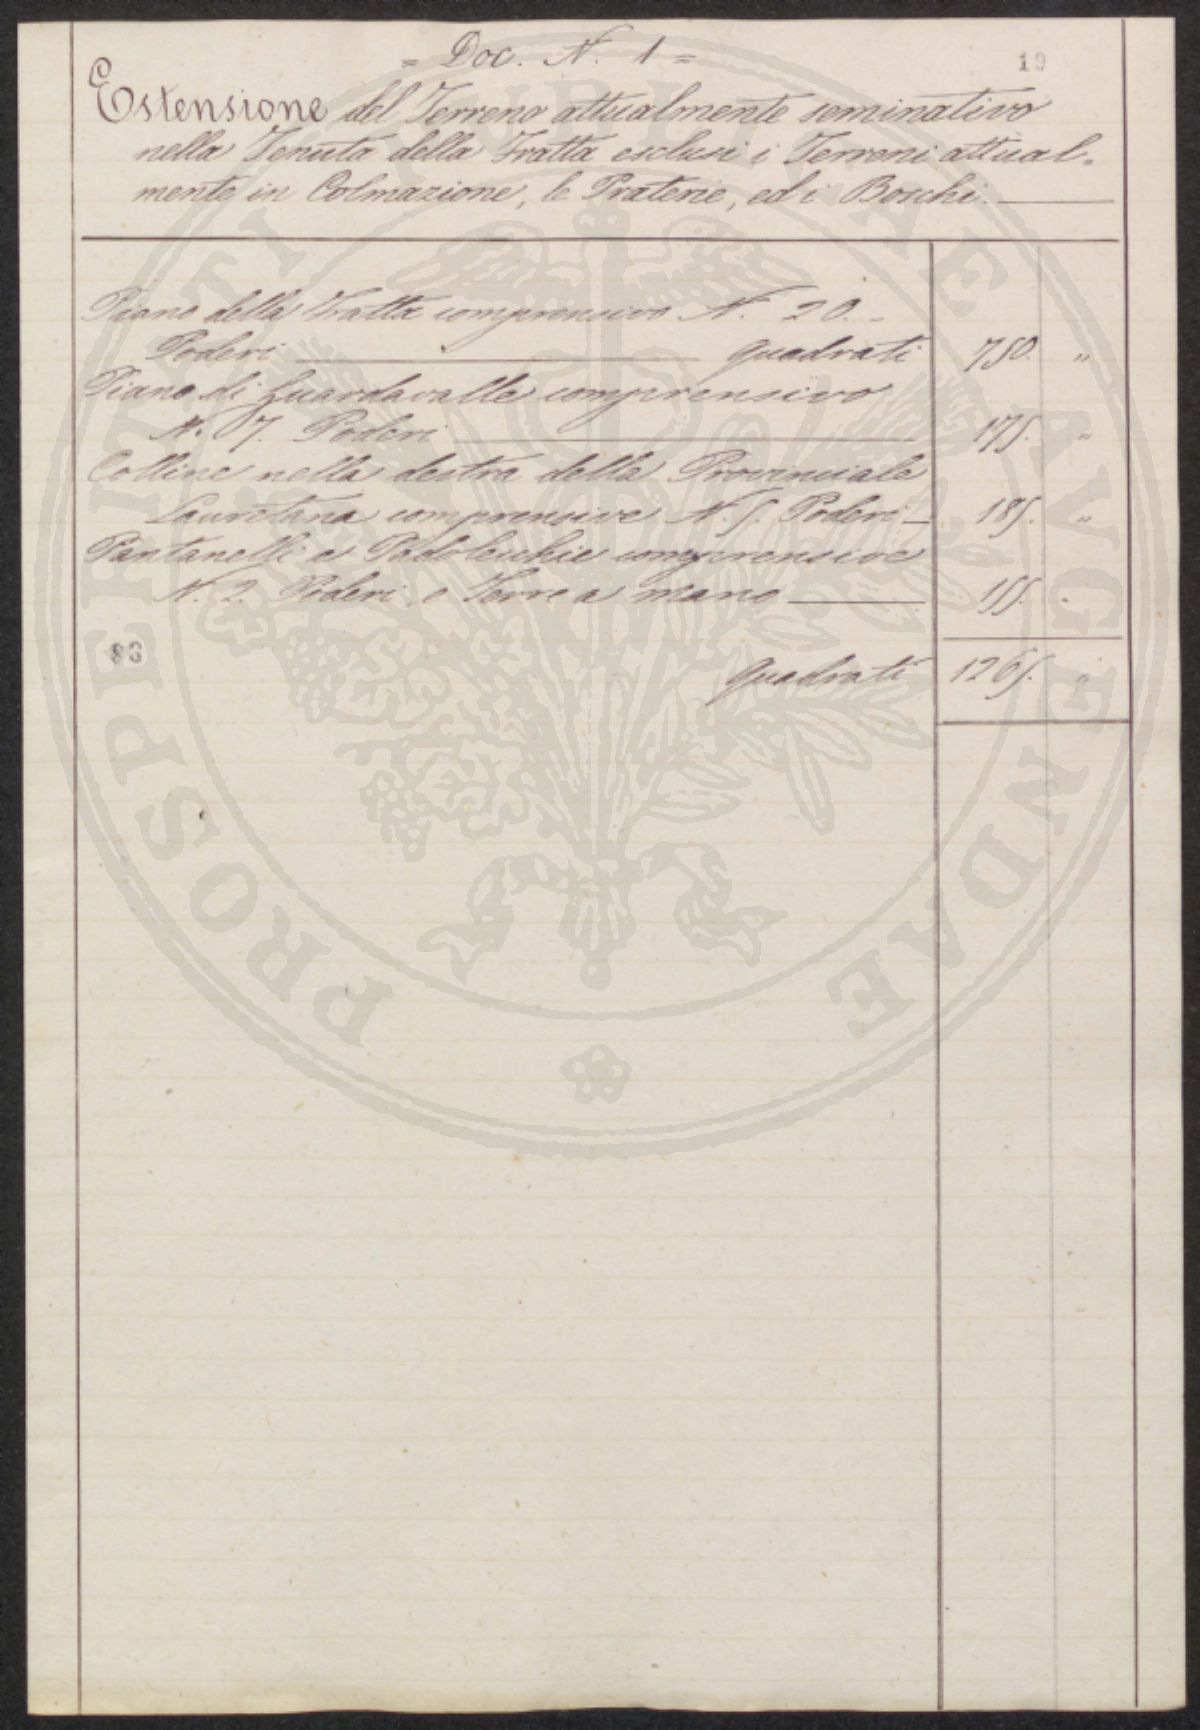 = Doc. N. 1 =
19
Estensione del Terreno attualmente seminativo
nella Tenuta della Fratta esclusi i Terreni attual-
mente in Colmazione, le Praterie, ed i Boschi.
Piano della Fratta comprensivo N. 20 -
Poderi quadrati 750. "
Piano di Guardavalle comprensivo
N. 7. Poderi 175. "
Colline nella destra della Provinciale
Lauretana comprensive N. 5. Poderi 185. "
Pantanelli e comprensive
N. 2. Poderi, e Terre a mano 155. "
93
quadrati 1265. "
PROSPERITATI PUBLICAE AVGENDAE